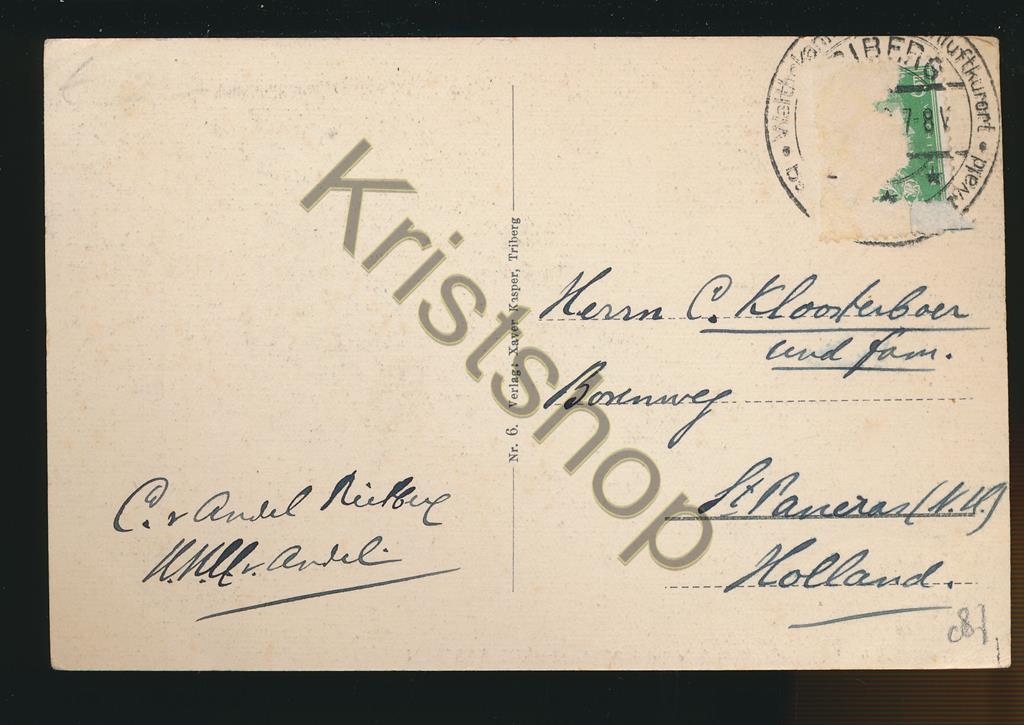 TRIBERG
7-8 V
Weltbekannt
luftkurort
Herrn C. Kloosterboer
und fam.
Bovenweg
St. Pancras (N.H.)
Holland.
C. v Andel Rietberg
v. Andel.
Nr. 6. Verlag: Xaver Kasper, Triberg
Kristshop